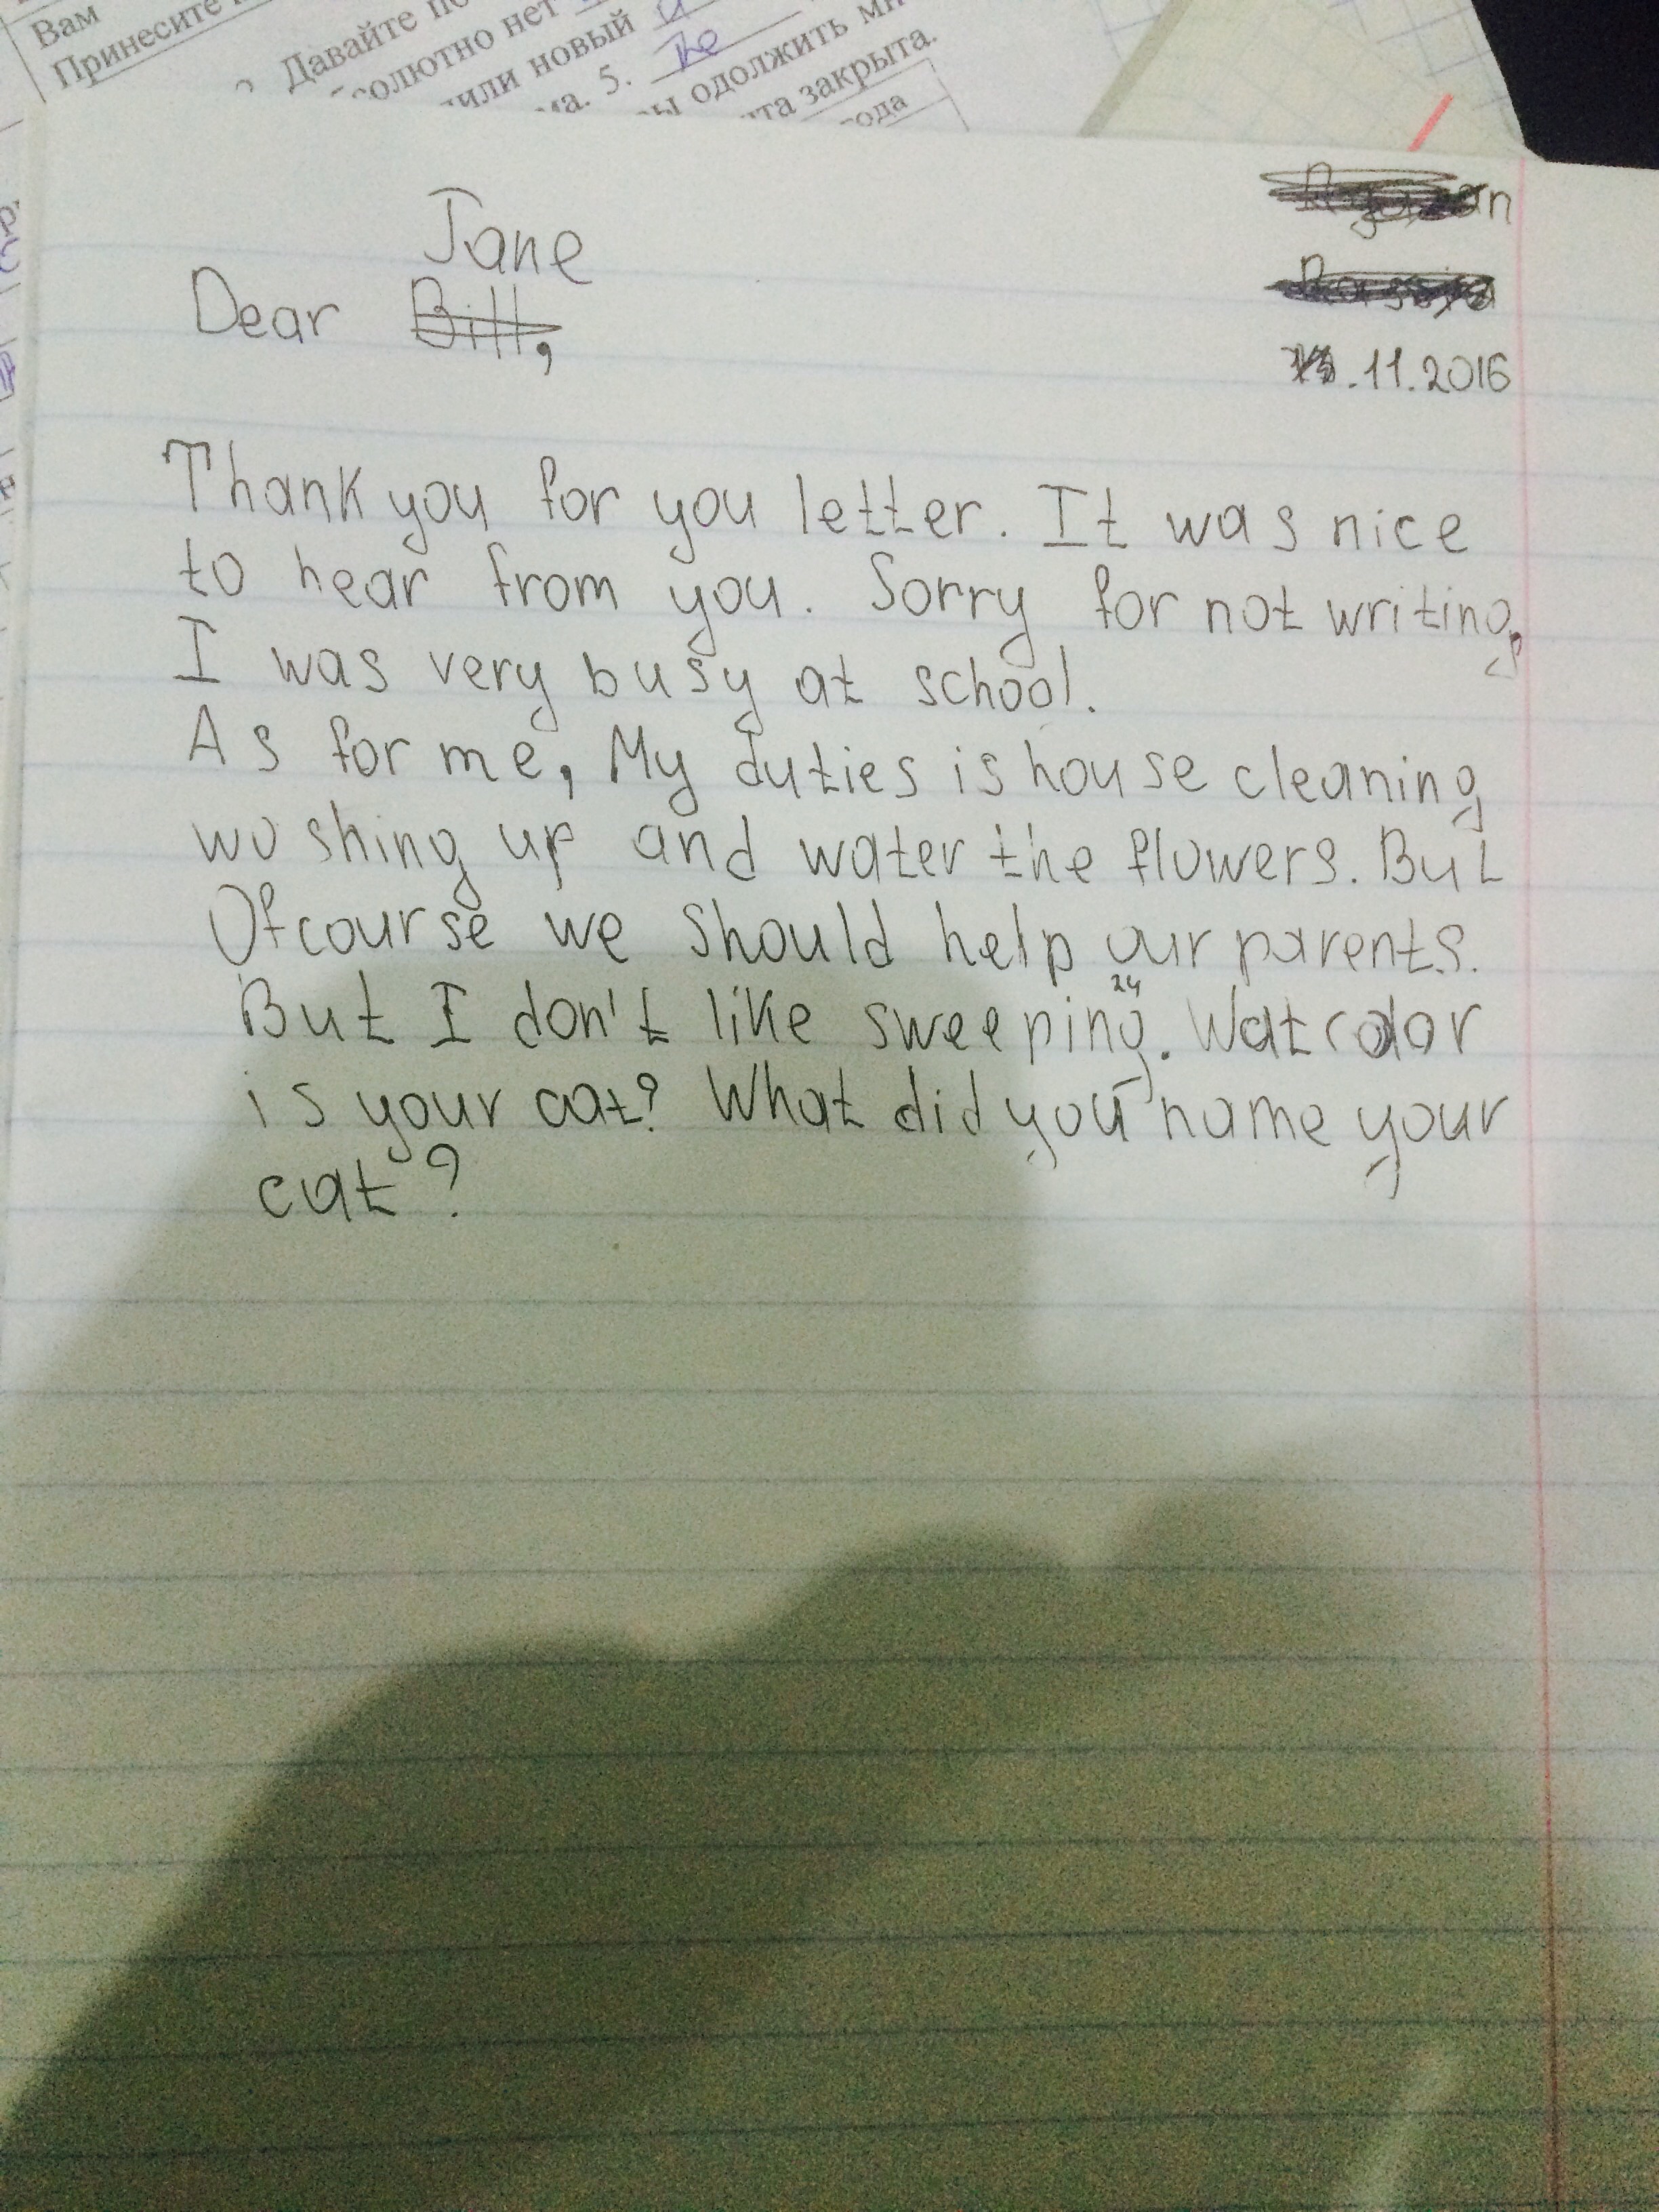 Вам
Принесите
Давайте
нет
новый
5. The
одолжить
закрыта.
.11.2016
Jane
Dear Bill,
Thank you for you letter. It was nice
to hear from you. Sorry for not writing,
I was very busy at school.
As for me, My duties is house cleaning
washing up and water the flowers. But
Ofcourse we should help our parents.
But I don't like sweeping. Wat color
is your cat? What did you name your
cat?